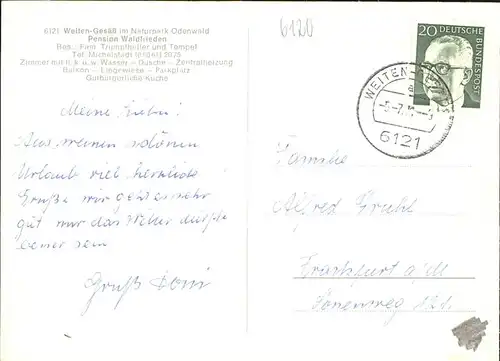 6121 Weiten-Gesäß im Naturpark Odenwald
Pension Waldfrieden
Bes.: Fam. Trumpfheller und Tempel
Tel. Michelstadt (06061) 2075
Zimmer mit fl. k. u. w. Wasser – Dusche – Zentralheizung
Balkon – Liegewiese – Parkplatz
Gutbürgerliche Küche
6120
20 DEUTSCHE
BUNDESPOST
WEITEN-
6121
Meine Lieben!
Aus meinem schönen
Urlaub viel herzliche
Grüße mir geht es sehr
gut nur das Wetter dürfte
besser sein
Gruß
Familie
Alfred
Frankfurt a/M